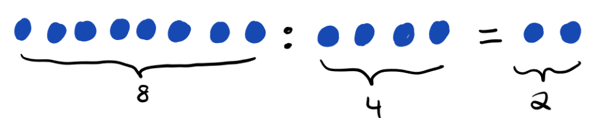 : =
8 4 2